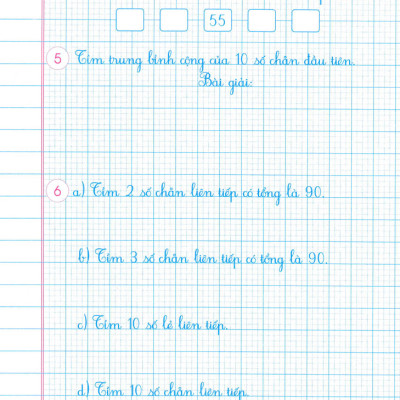 55
5 Tìm trung bình cộng của 10 số chẵn đầu tiên.
Bài giải:
6 a) Tìm 2 số chẵn liên tiếp có tổng là 90.
b) Tìm 3 số chẵn liên tiếp có tổng là 90.
c) Tìm 10 số lẻ liên tiếp.
d) Tìm 10 số chẵn liên tiếp.